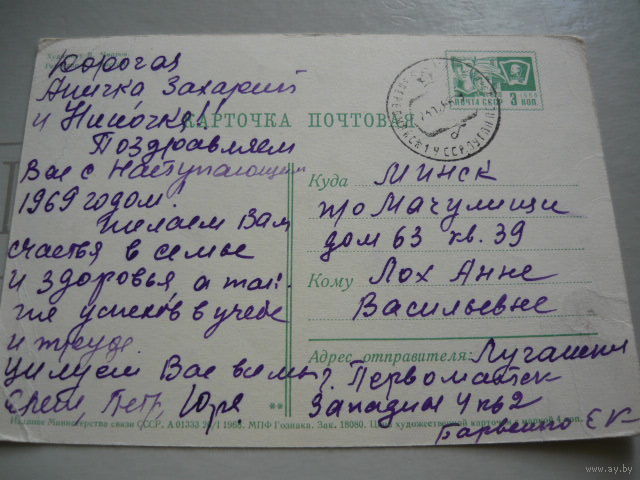 Дорогая
Аничка Захарий
и Ниночка!!
Поздравляем
Вас с наступающим
1969 годом.
желаем Вам
счастья в семье
и здоровья, а так-
же успехов в учебе
и труде.
Целуем Вас всех
Петр, Юра
КАРТОЧКА ПОЧТОВАЯ
ПОЧТА СССР 3 коп.
Куда Минск
п/о Мачулищи
дом 63 кв. 39
Кому Лох Анне
Васильевне
Адрес отправителя: Луганская
Первомайск
Западная 4 кв 2
Барвенко Е К
** 
Издание Министерства связи СССР. А 01333 1968. МПФ Гознака. Зак. 18080. Цена художественной карточки с маркой 4 коп.
www.ay.by